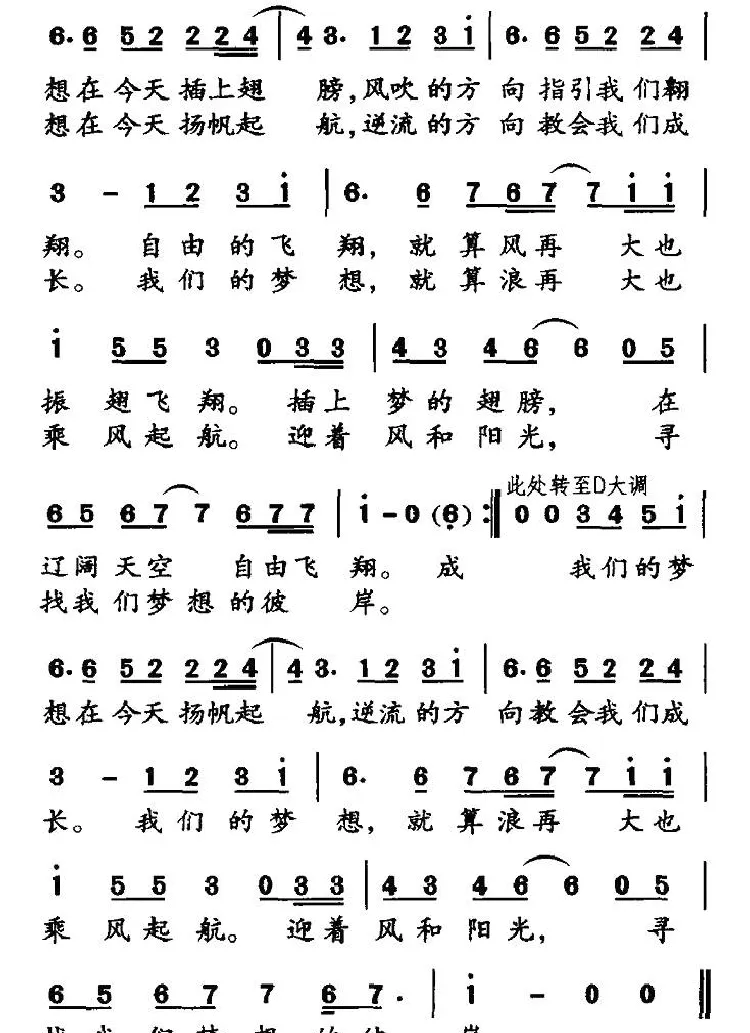 6· 6 5 2 2 2 2 4 | 4 3· 1 2 3 i | 6· 6 5 2 2 4
想在今天插上翅 膀,风吹的方 向指引我们翱
想在今天扬帆起 航,逆流的方 向教会我们成
3 - 1 2 3 i | 6· 6 7 6 7 7 i i |
翔。 自由的飞 翔, 就算风再 大也
长。 我们的梦 想, 就算浪再 大也
i 5 5 3 0 3 3 | 4 3 4 6 6 0 5 |
振 翅飞翔。 插上 梦的翅膀, 在
乘 风起航。 迎着 风和阳光, 寻
此处转至D大调
6 5 6 7 7 6 7 7 | i - 0 (6) :| 0 0 3 4 5 i |
辽阔天空 自由飞 翔。 成 我们的梦
找我们梦想的彼 岸。
6· 6 5 2 2 2 2 4 | 4 3· 1 2 3 i | 6· 6 5 2 2 4 |
想在今天扬帆起 航,逆流的方 向教会我们成
3 - 1 2 3 i | 6· 6 7 6 7 7 i i |
长。 我们的梦 想, 就算浪再 大也
i 5 5 3 0 3 3 | 4 3 4 6 6 0 5 |
乘 风起航。 迎着 风和阳光, 寻
6 5 6 7 7 6 7· | i - 0 0 ‖